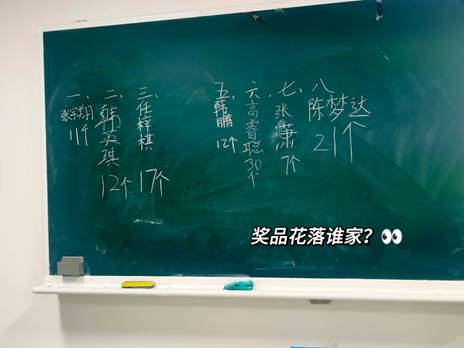 一、
张宗翔
11个
二、
韩英琪
12个
三、
任梓棋
17个
五、
韩鹏
12个
六、
高睿聪
30个
七、
张潇
7个
八
陈梦达
21个
奖品花落谁家？👀